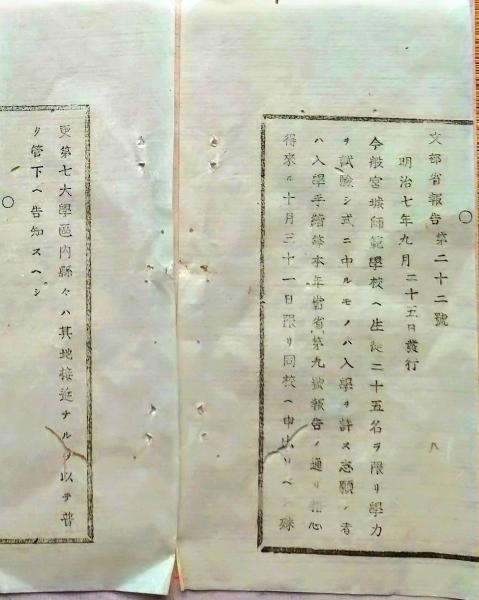 文部省報告第二十二號
明治七年九月二十五日發行
八
今般宮城師範學校ヘ生徒二十五名ヲ限リ學力
ヲ試驗シ式ニ中ルモノハ入學ヲ許ス志願ノ者
ハ入學手續等本年當省第九號報告ノ通リ相心
得來ル十月三十一日限リ同校ヘ申出ツヘ殊
更第七大學區內縣々ハ其地接近ナルヲ以テ普
ク管下ヘ告知スヘシ